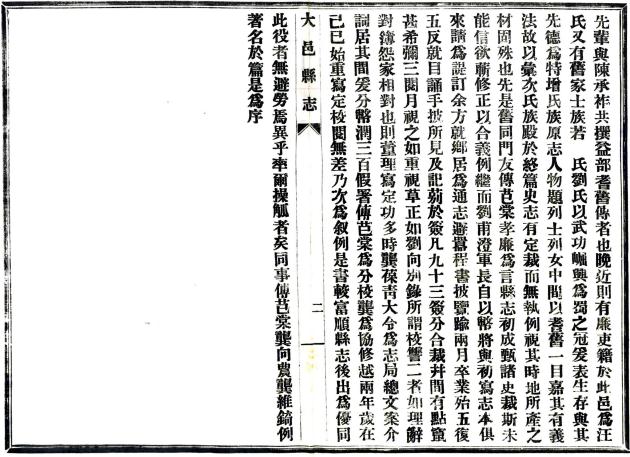 先輩與陳承祚共撰益部耆舊傳者也晚近則有廉吏籍於此邑爲汪
氏又有舊家士族若　氏劉氏以武功崛興爲蜀之冠爰表生存與其
先德爲特增氏族原志人物題列士列女中間以耆舊一目嘉其有義
法故以彙次氏族殿於終篇史志有定裁而無執例視其時地所產之
材固殊也先是舊同門友傅芑棠孝廉爲言縣志初成甄諸史裁斯未
能信欲蘄修正以合義例繼而劉甫澄軍長自以幣將與初寫志本俱
來請爲諟訂余方就鄉居爲通志避囂程書披覽踰兩月卒業殆五復
五反就目誦手披所見及記葪於簽凡九十三簽分合裁幷間有點竄
甚希彌三閱月視之如重視草正如劉向別錄所謂校讐二者如理辭
對簿怨家相對也則董理寫定功多時龔葆靑大令爲志局總文案介
詞居其間爰分幣潤三百假署傅芑棠爲分校龔爲協修越兩年歲在
己巳始重寫定校閱無差乃次爲敘例是書較富順縣志後出爲優同
大邑縣志
二
此役者無避勞焉異乎率爾操觚者矣同事傅芑棠龔向農龔維錡例
著名於篇是爲序